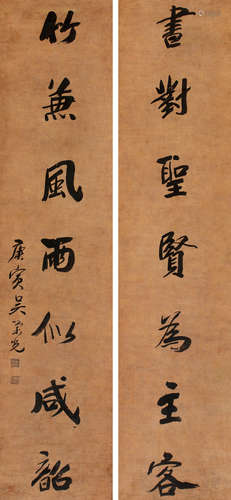 書對聖賢為主客
竹兼風雨似咸韶
庚寅吳榮光